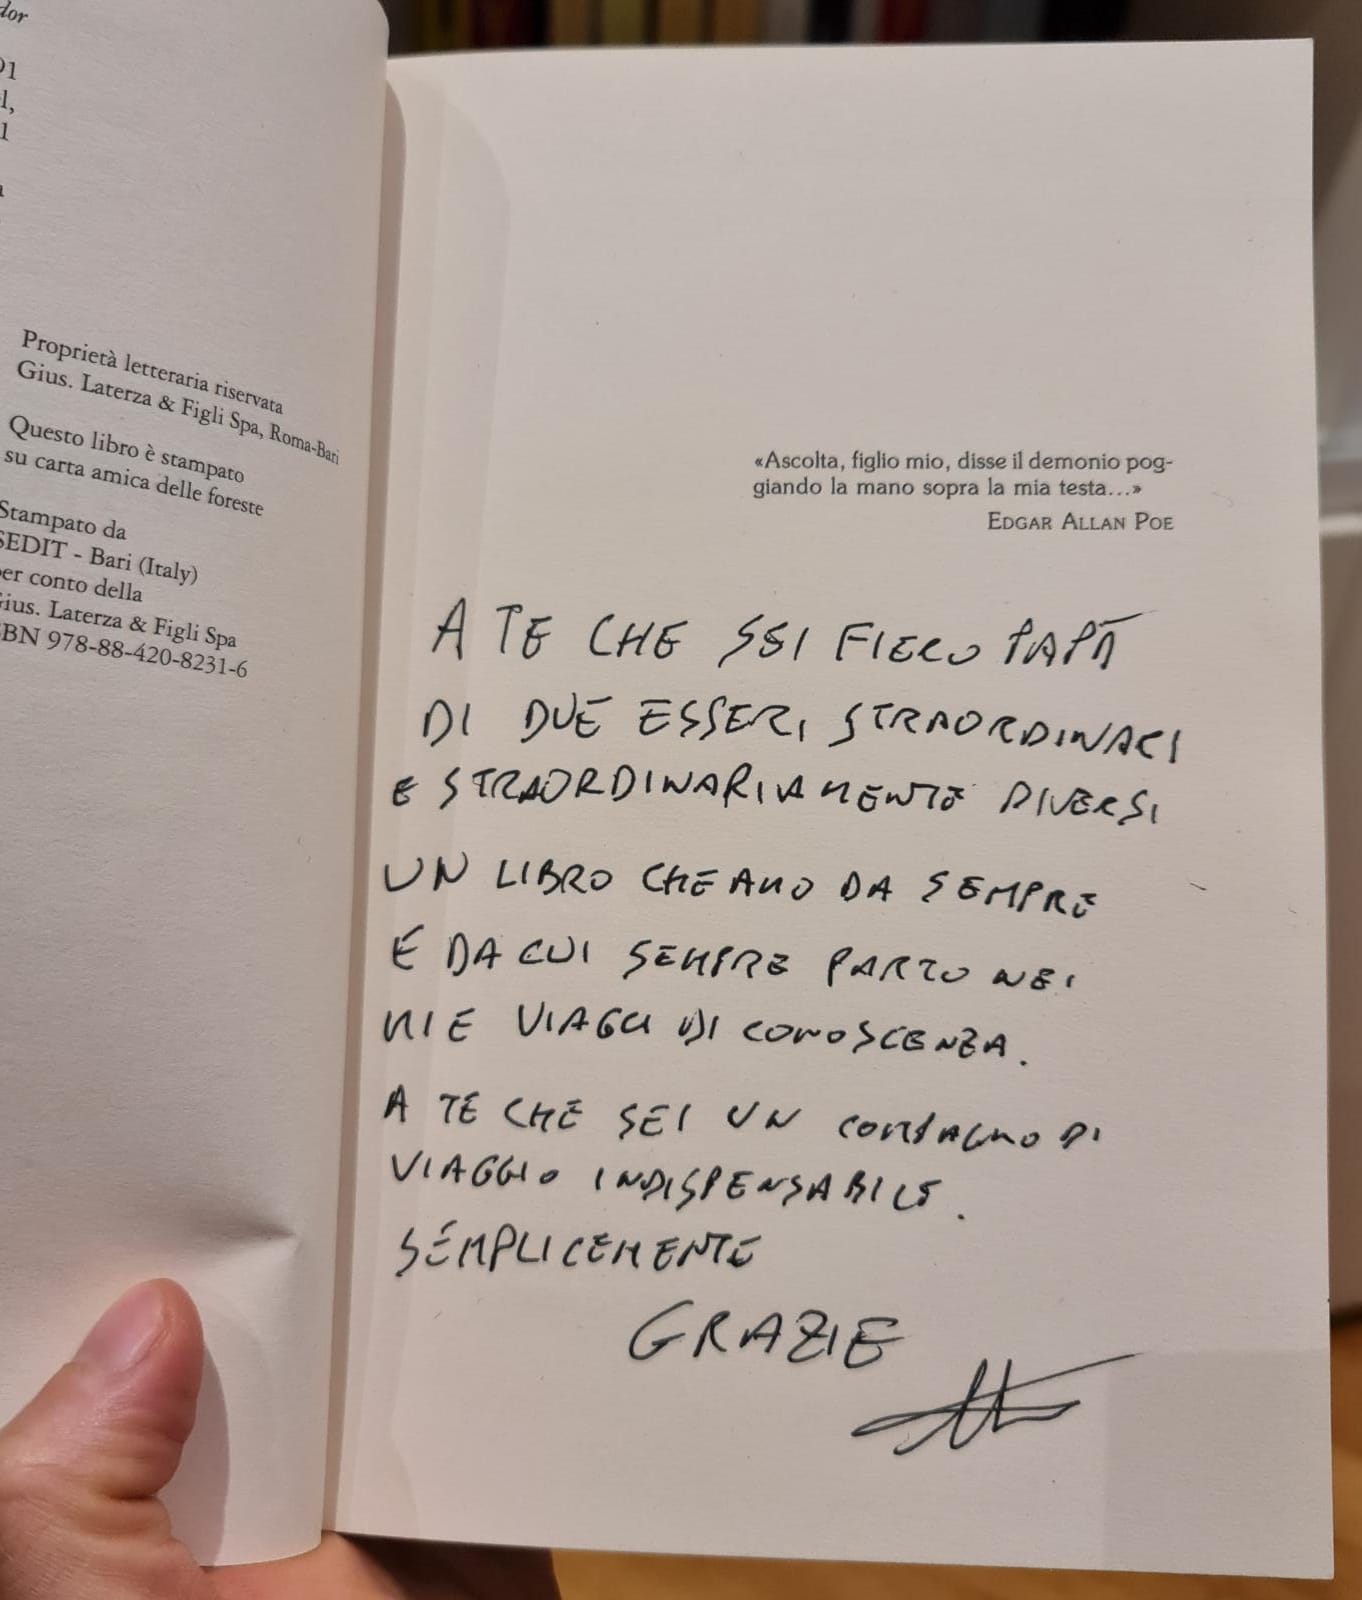 dor
91
l,
1
a
Proprietà letteraria riservata
Gius. Laterza & Figli Spa, Roma-Bari
Questo libro è stampato
su carta amica delle foreste
Stampato da
SEDIT - Bari (Italy)
per conto della
Gius. Laterza & Figli Spa
SBN 978-88-420-8231-6
«Ascolta, figlio mio, disse il demonio pog-
giando la mano sopra la mia testa...»
EDGAR ALLAN POE
A TE CHE SEI FIERO PAPÀ
DI DUE ESSERI STRAORDINARI
E STRAORDINARIAMENTE DIVERSI
UN LIBRO CHE AMO DA SEMPRE
E DA CUI SEMPRE PARTO NEI
MIE VIAGGI DI CONOSCENZA.
A TE CHE SEI UN COMPAGNO DI
VIAGGIO INDISPENSABILE.
SEMPLICEMENTE
GRAZIE